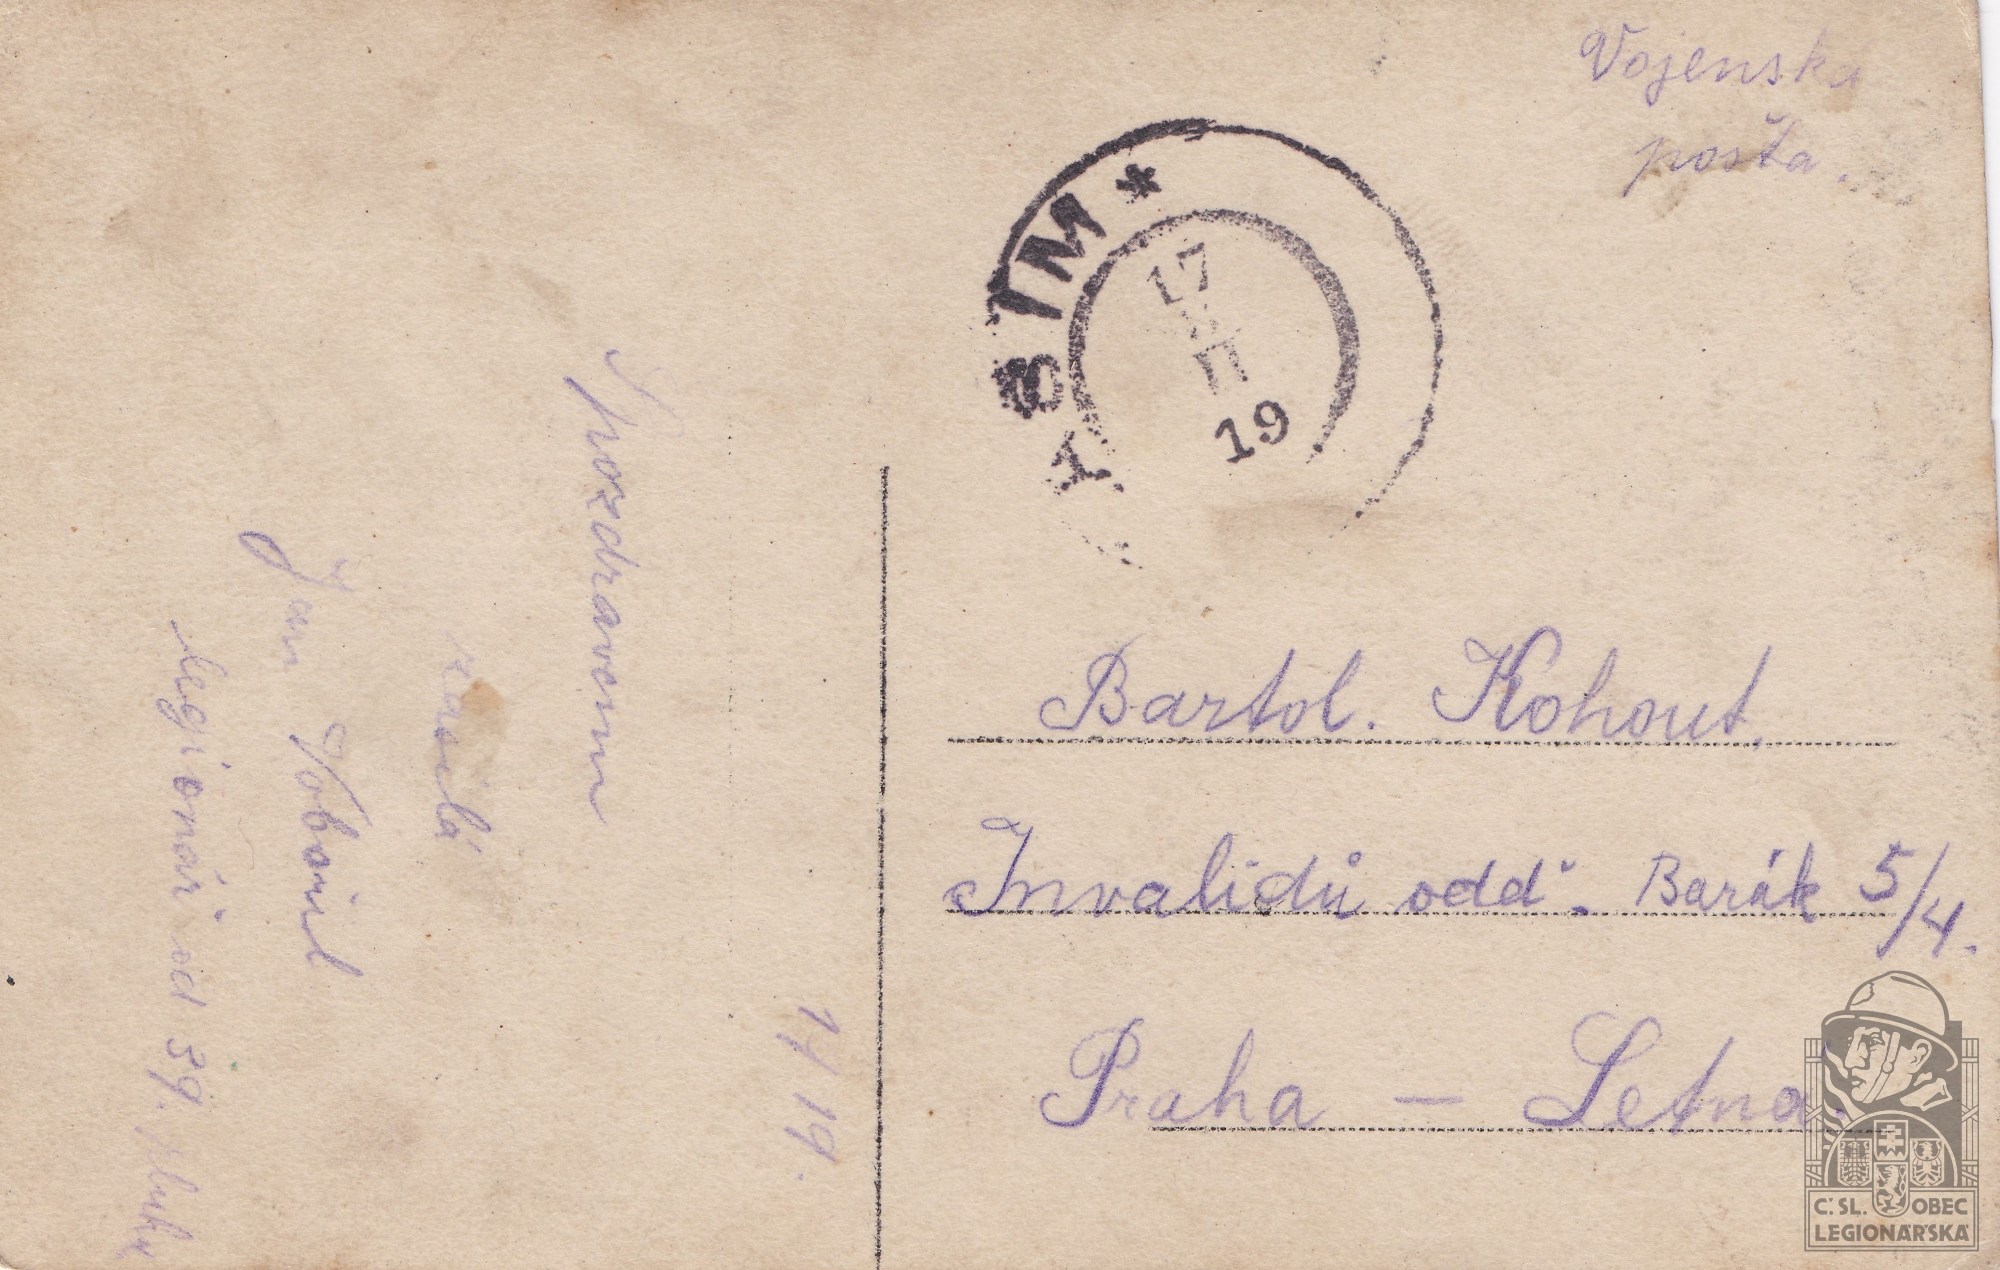 Vojenska
pošta.
* MISK
17
XII
19
Bartol. Kohout,
Invalidů odd. Barák 5/4.
Praha — Letna.
S pozdravem
zasílá
Jan Vobořil
legionář od 39. pluku
1/19.
Č. SL. OBEC
LEGIONÁŘSKÁ